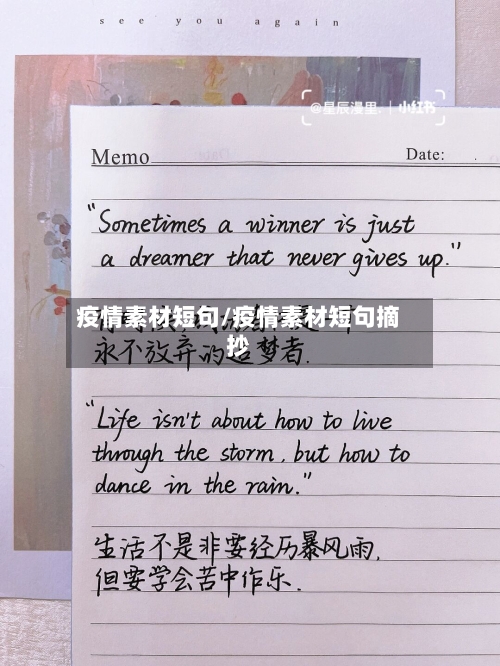 see you again
@星辰漫里. 小红书
Memo
Date:
"Sometimes a winner is just
a dreamer that never gives up."
疫情素材短句/疫情素材短句摘
抄
永不放弃的追梦者.
"Life isn't about how to live
through the storm, but how to
dance in the rain."
生活不是非要经历暴风雨,
但要学会苦中作乐.